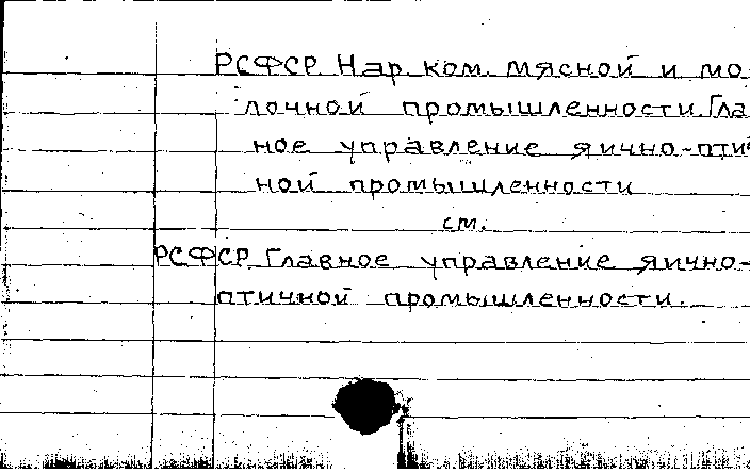 РСФСР. Нар. ком. мясной и мо
лочной промышленности. Гла
ное управление яично-пти
ной промышленности
см.
РСФСР. Главное управление яично-
птичной промышленности.